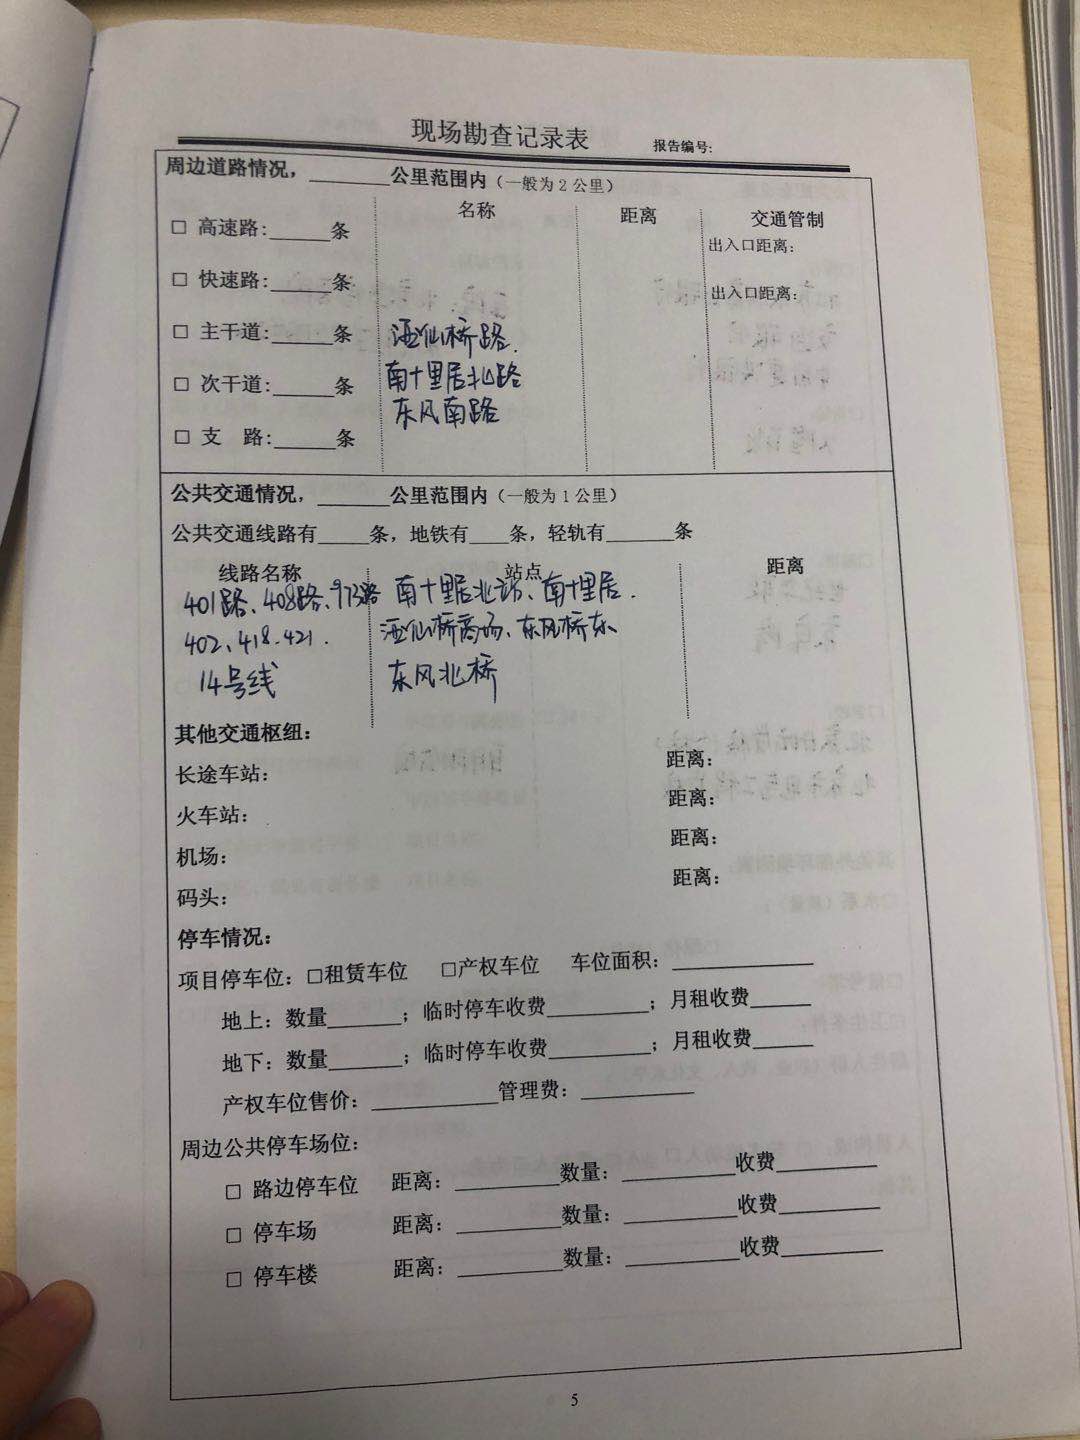 现场勘查记录表 报告编号:
周边道路情况，______公里范围内（一般为2公里）
名称 距离 交通管制
□ 高速路:_____条 出入口距离:
□ 快速路:_____条 出入口距离:
□ 主干道:_____条 酒仙桥路.
□ 次干道:_____条 南十里居北路
东风南路
□ 支 路:_____条
公共交通情况，______公里范围内（一般为1公里）
公共交通线路有____条，地铁有___条，轻轨有______条
线路名称 站点 距离
401路、408路、973路 南十里居北站、南十里居.
402、418、421. 酒仙桥商场、东风桥东
14号线 东风北桥
其他交通枢纽:
长途车站: 距离:
火车站: 距离:
机场: 距离:
码头: 距离:
停车情况:
项目停车位: □租赁车位 □产权车位 车位面积:____________
地上: 数量______; 临时停车收费________; 月租收费_____
地下: 数量______; 临时停车收费________; 月租收费_____
产权车位售价:__________管理费:_________
周边公共停车场位:
□ 路边停车位 距离:________数量:_________收费________
□ 停车场 距离:________数量:_________收费________
□ 停车楼 距离:________数量:_________收费________
5